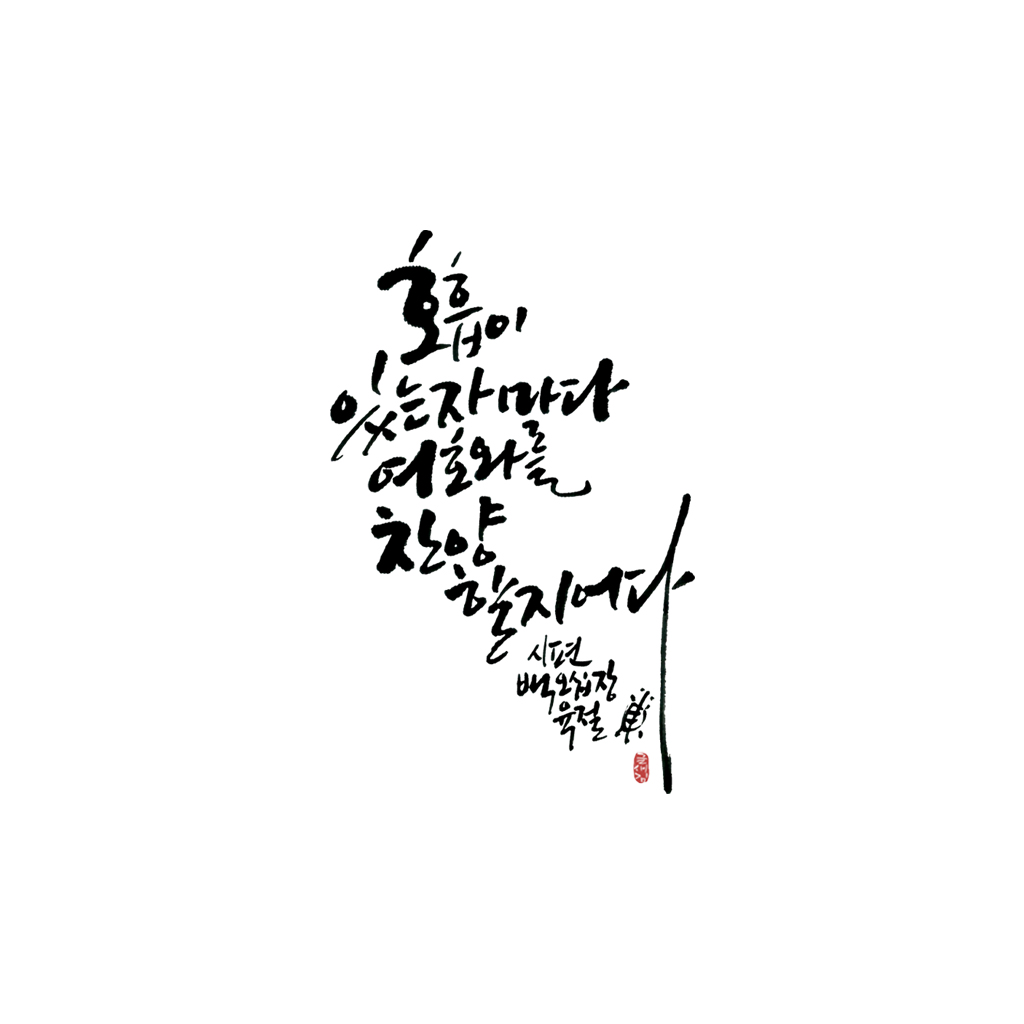 호흡이
있는자마다
여호와를
찬양
할지어다
시편
백오십장
육절